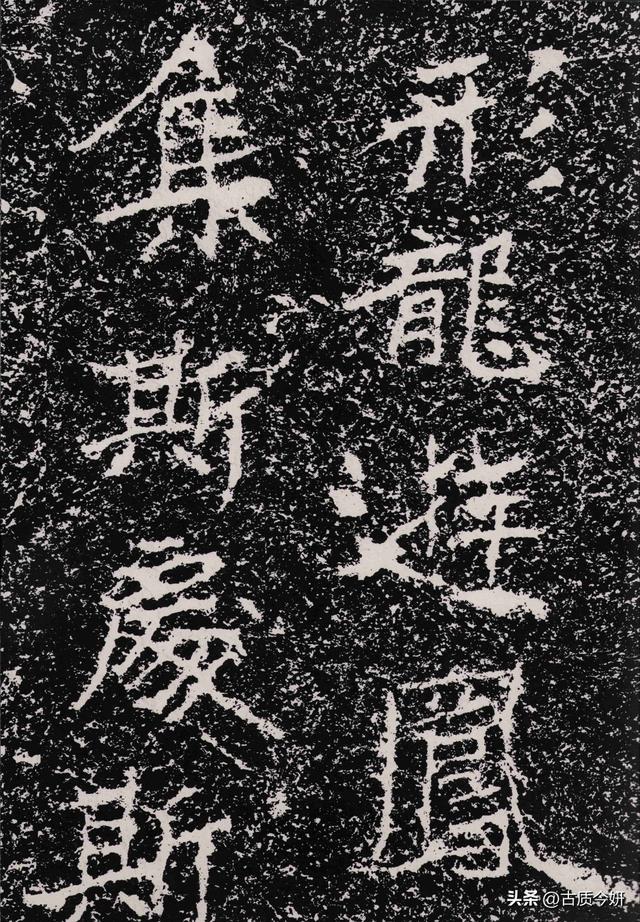 形龍遊鳳
集斯處斯
头条 @古质今妍